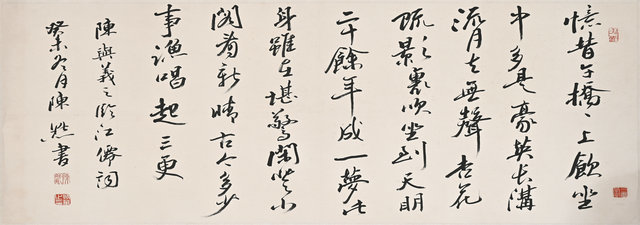 憶昔午橋〻上飲坐
中多是豪英長溝
流月去無聲杏花
疏影裏吹笛到天明
二十餘年成一夢此
身雖在堪驚閑登小
閣看新晴古今多少
事漁唱起三更
陳與義之臨江僊詞
癸未冬月陳書